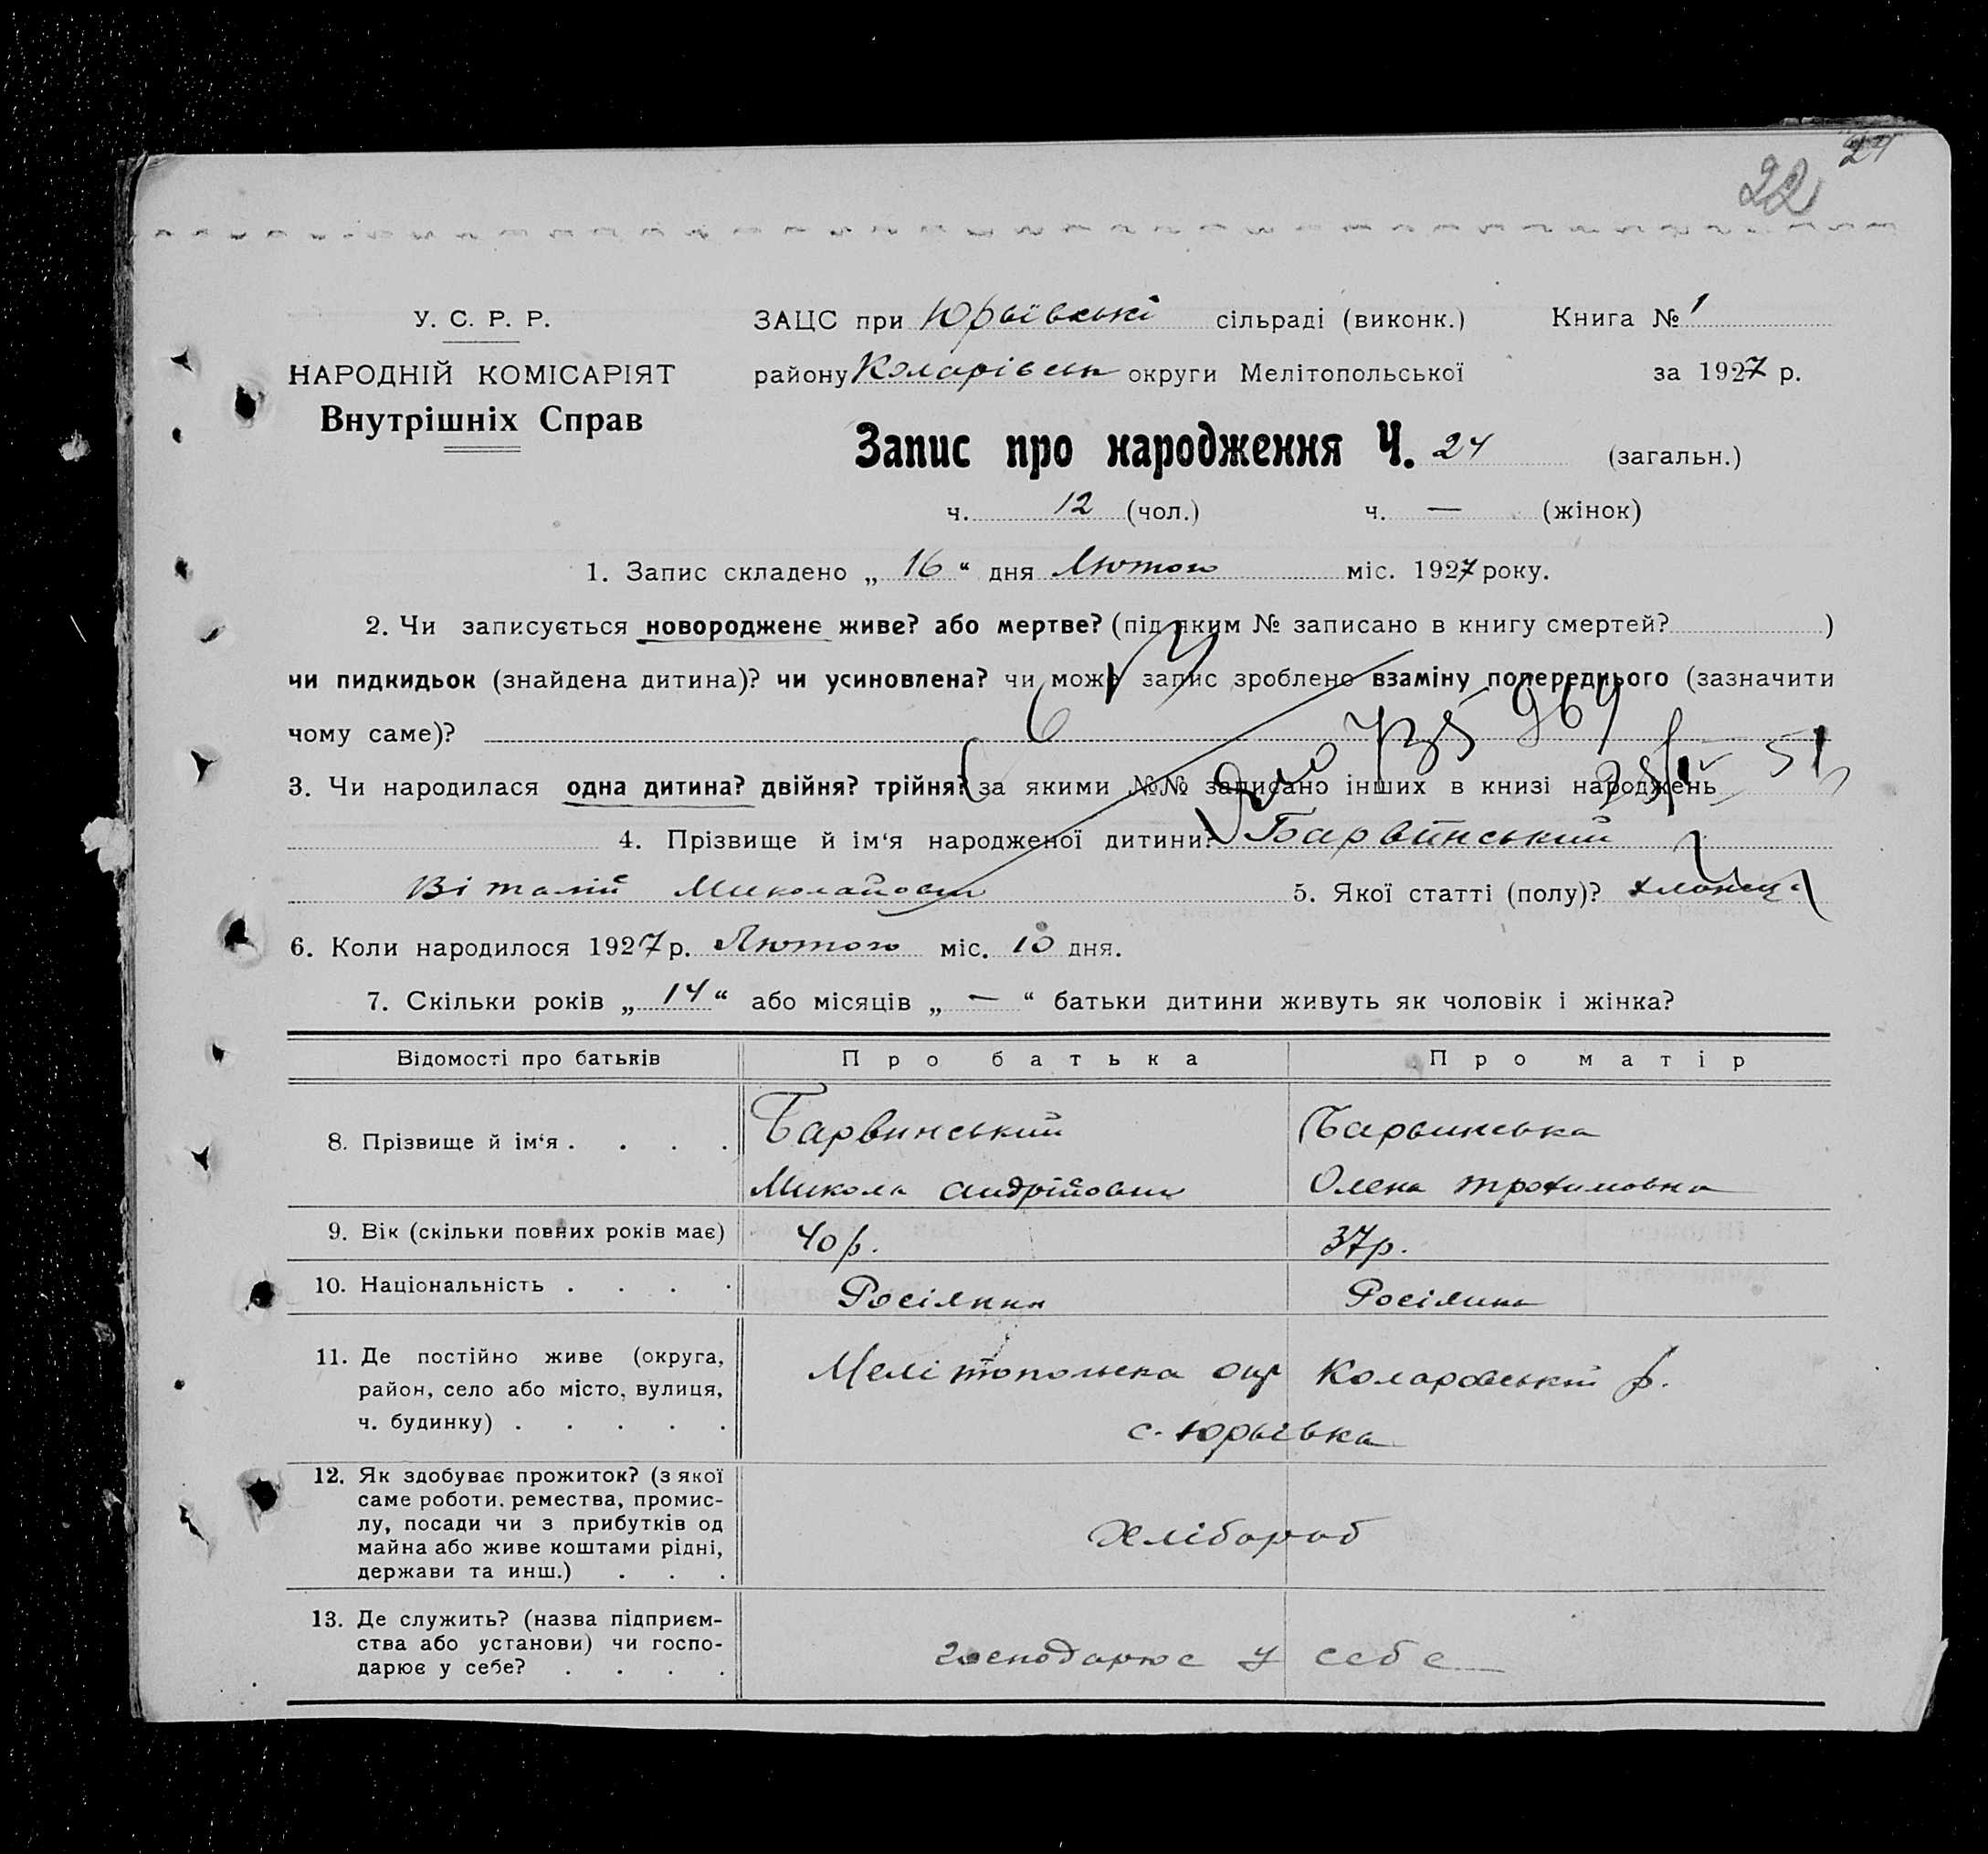 24
22
У. С. Р. Р.
НАРОДНІЙ КОМІСАРІЯТ
Внутрішніх Справ
ЗАЦС при Юрьївські сільраді (виконк.) Книга № 1
району Коларівськ округи Мелітопольської за 1927 р.
Запис про народження Ч. 24 (загальн.)
ч. 12 (чол.) ч. — (жінок)
1. Запис складено „ 16 “ дня Лютого міс. 1927 року.
2. Чи записується новороджене живе? або мертве? (під яким № записано в книгу смертей? )
чи пидкидьок (знайдена дитина)? чи усиновлена? чи може запис зроблено взаміну попереднього (зазначити
чому саме)?
3. Чи народилася одна дитина? двійня? трійня? за якими №№ записано інших в книзі народжень
4. Прізвище й ім‘я народженої дитини? Барвинський
Віталій Миколайович 5. Якої статті (полу)? хлопець
6. Коли народилося 1927 р. Лютого міс. 10 дня.
7. Скільки років „ 14 “ або місяців „ — “ батьки дитини живуть як чоловік і жінка?
Відомості про батьків Про батька Про матір
8. Прізвище й ім‘я . . . . Барвинський Барвинська
Микола Андрійович Олена Трохимовна
9. Вік (скільки повних років має) 40 р. 37 р.
10. Національність . . . . Росіянин Росіянка
11. Де постійно живе (округа,
район, село або місто, вулиця,
ч. будинку) . . . . .
Мелітопольска окр Коларовський р.
с. Юрьівка
12. Як здобуває прожиток? (з якої
саме роботи, ремества, промис-
лу, посади чи з прибутків од
майна або живе коштами рідні,
держави та инш.) . . .
Хлібороб
13. Де служить? (назва підприєм-
ства або установи) чи госпо-
дарює у себе? . . . .
господарює у себе